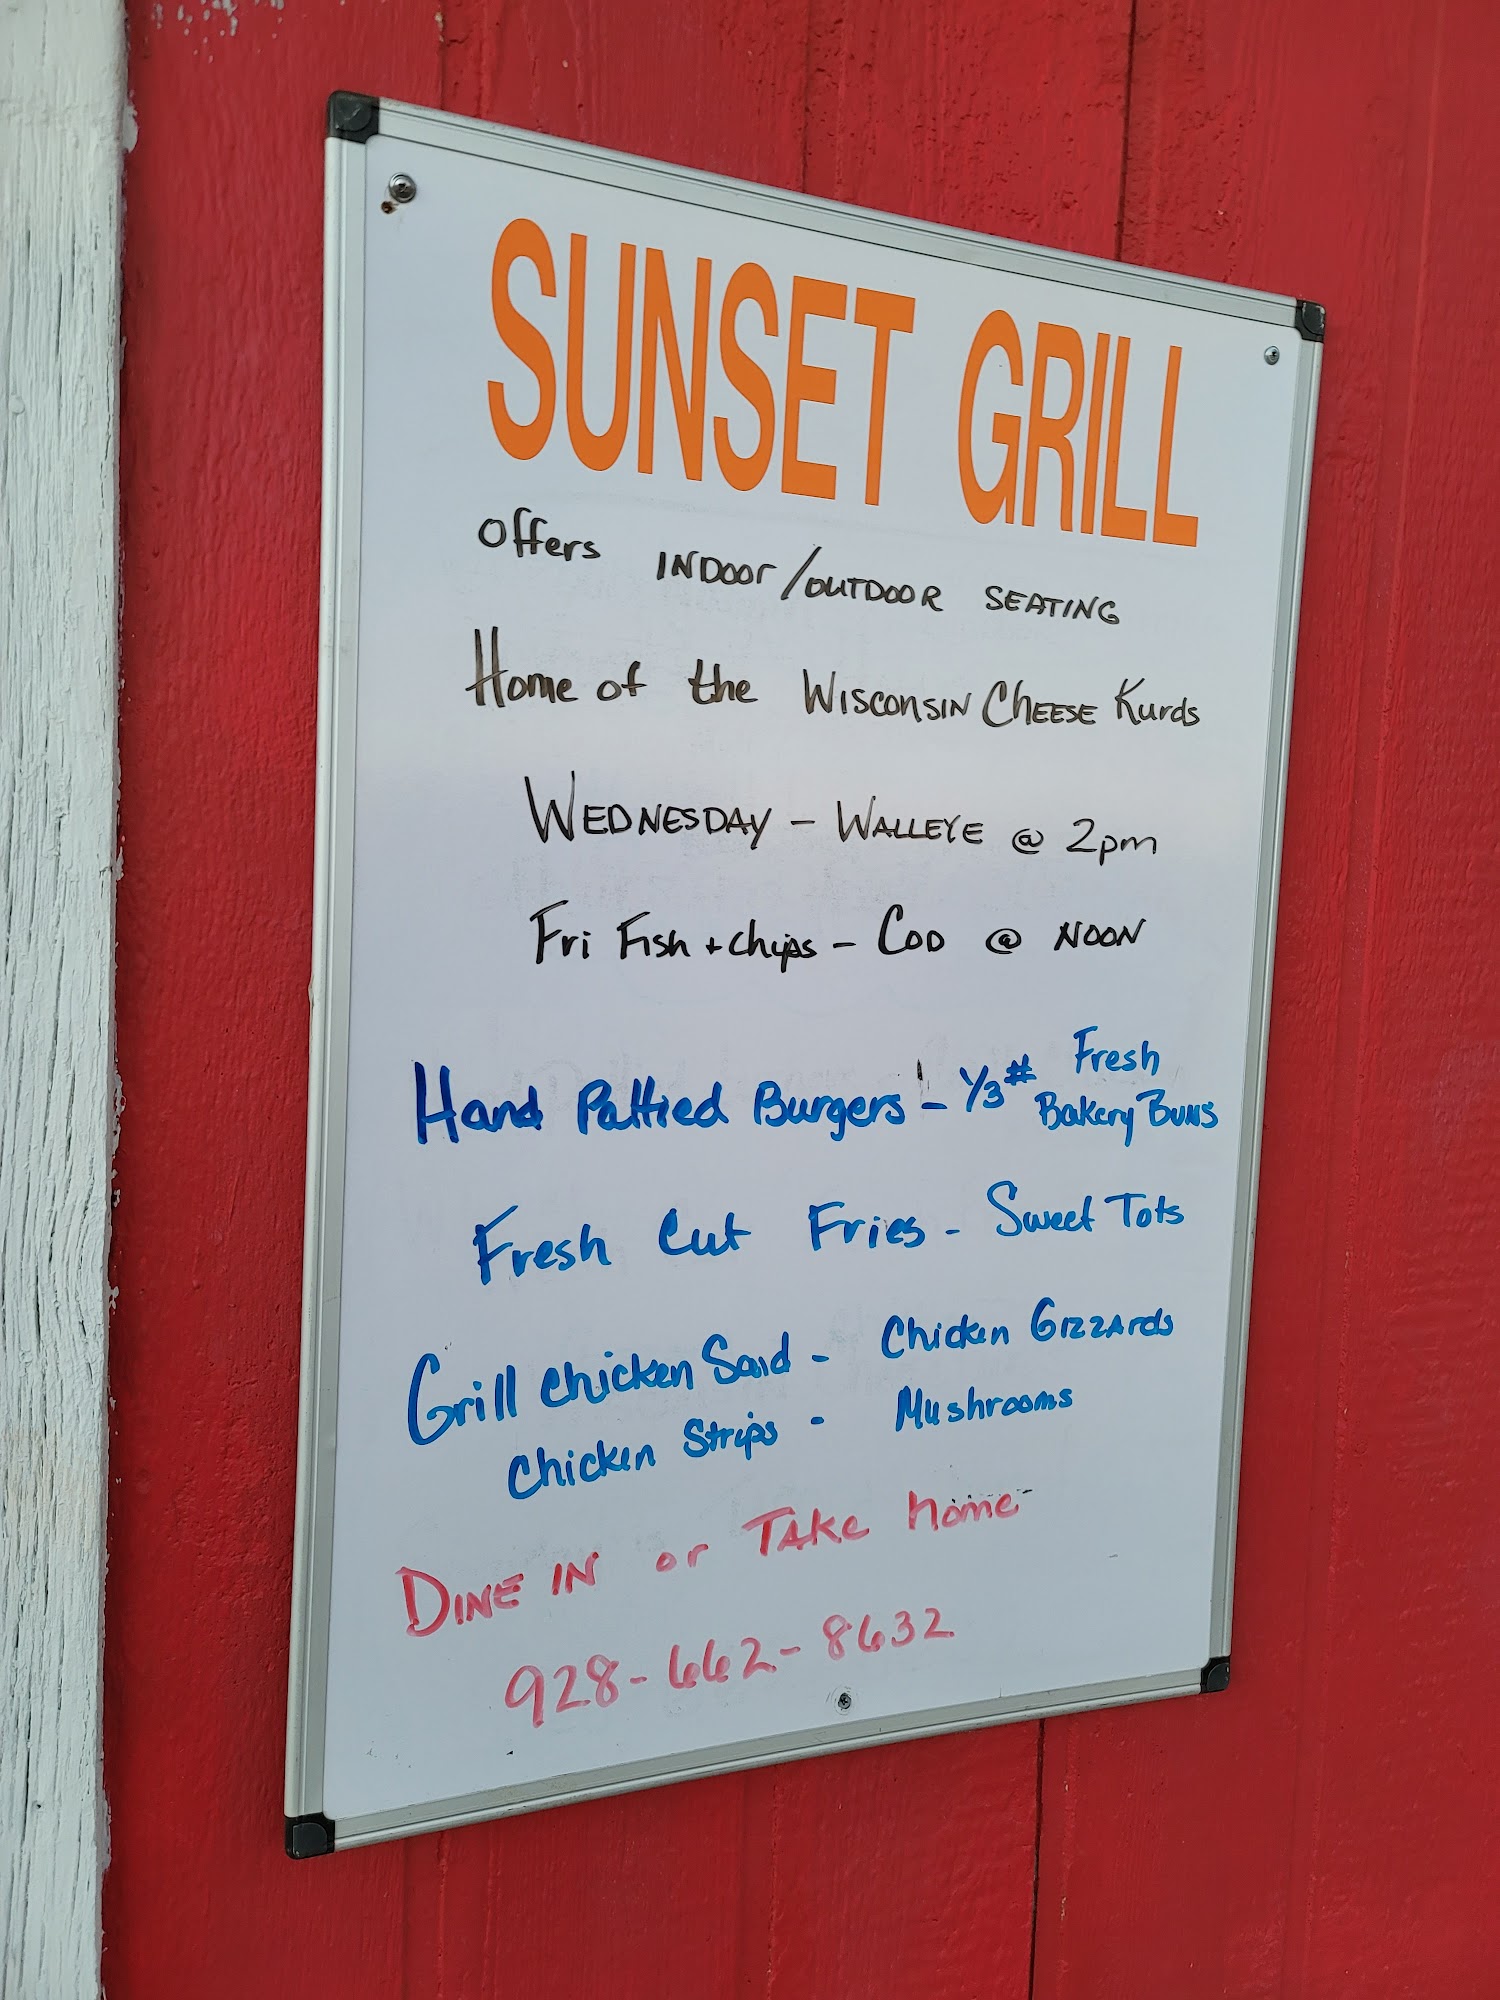 SUNSET GRILL
Offers INDOOR/OUTDOOR SEATING
Home of the WISCONSIN CHEESE Kurds
WEDNESDAY - WALLEYE @ 2pm
Fri Fish + chips - COD @ NOON
Hand Pattied Burgers - 1/3# Fresh Bakery Buns
Fresh Cut Fries - Sweet Tots
Grill chicken Sald - Chicken Gizzards
Chicken Strips - Mushrooms
DINE IN or TAKE home
928-662-8632